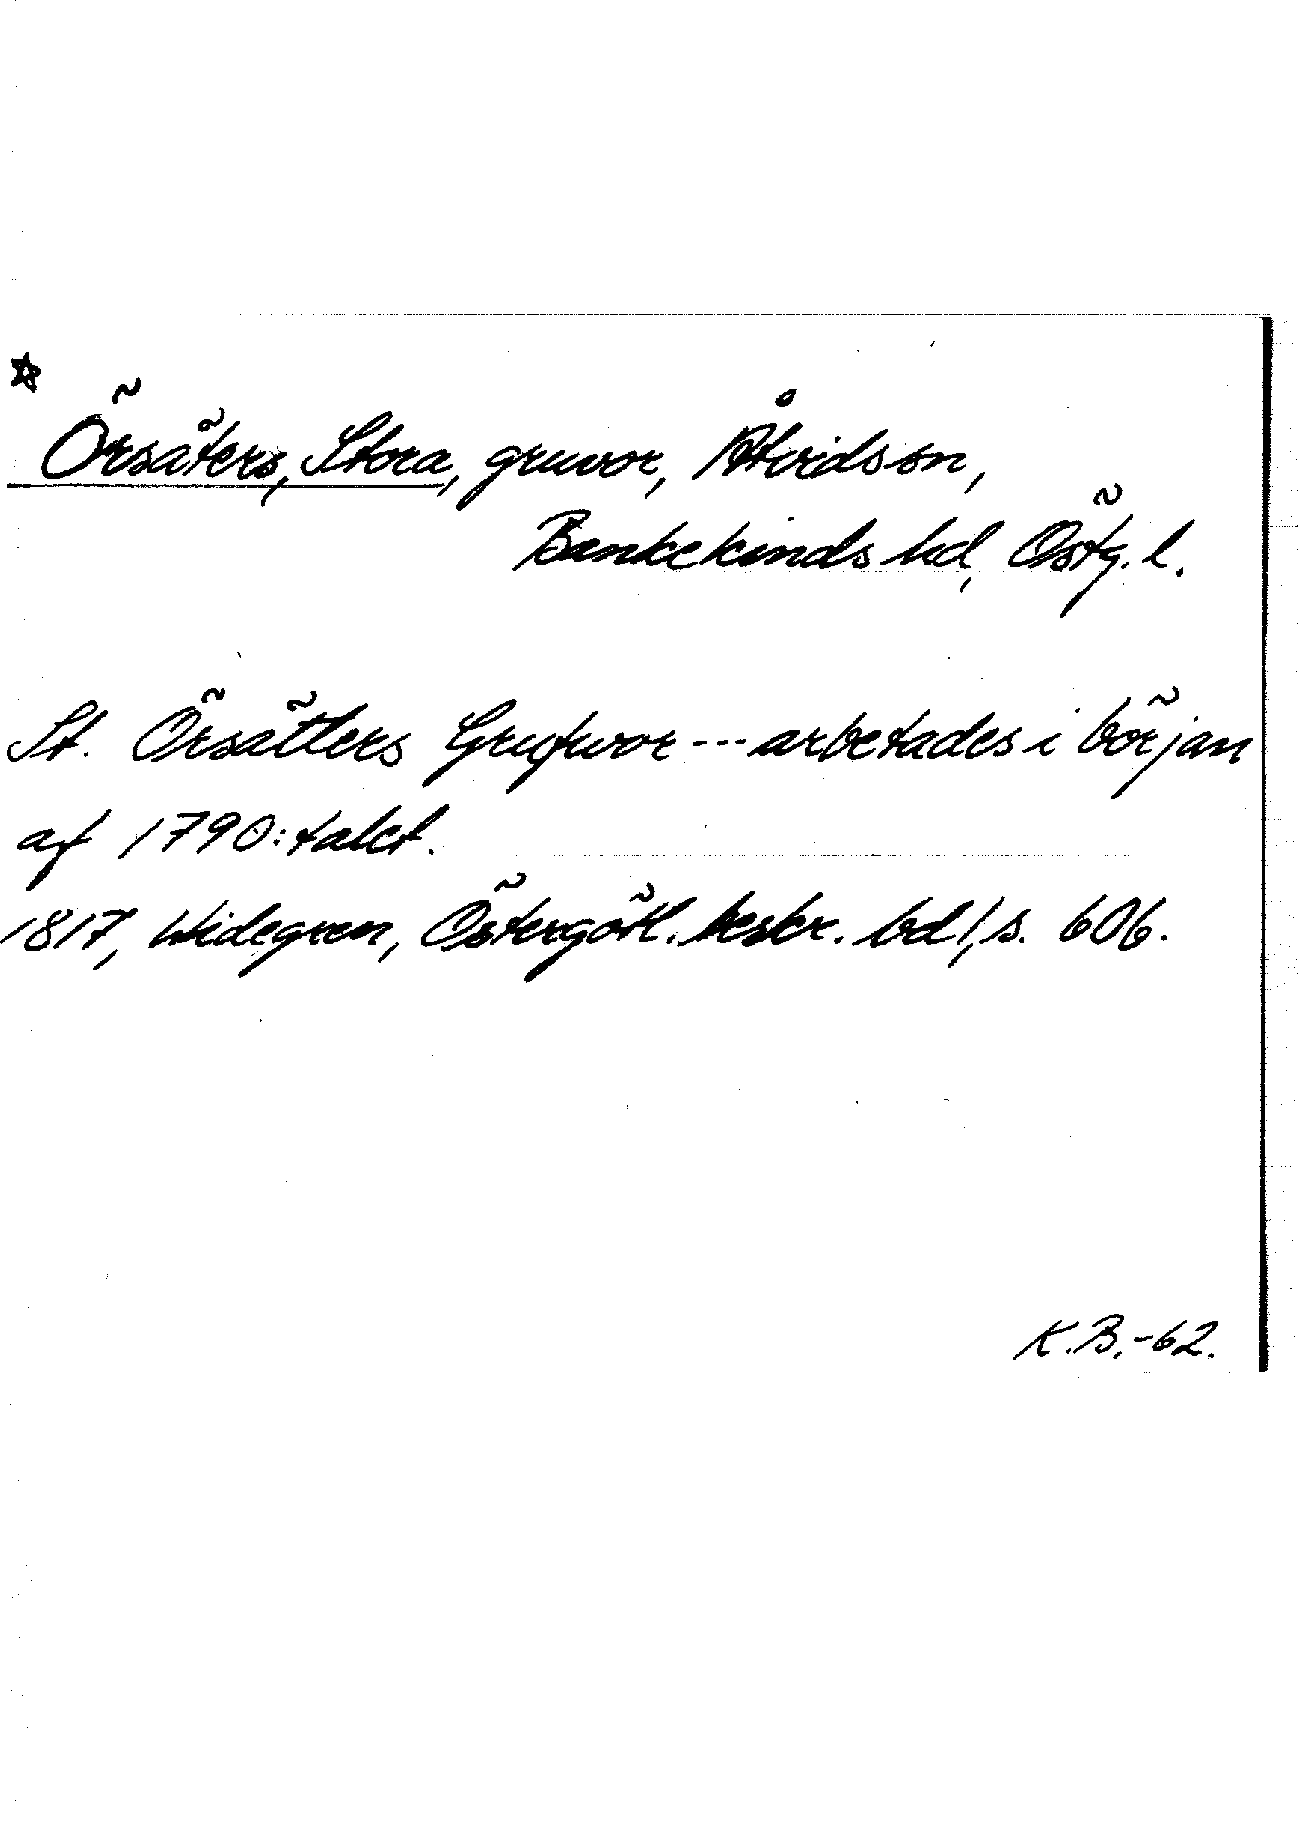 ☆
Örsäters, Stora, gruvor, Åtvidson,
Bankekinds hd, Östg. l.
St. Örsätters Grufwor --- arbetades i början
af 1790:talet.
1817, Widegren, Östergötl. beskr. bd 1, s. 606.
K.B.-62.